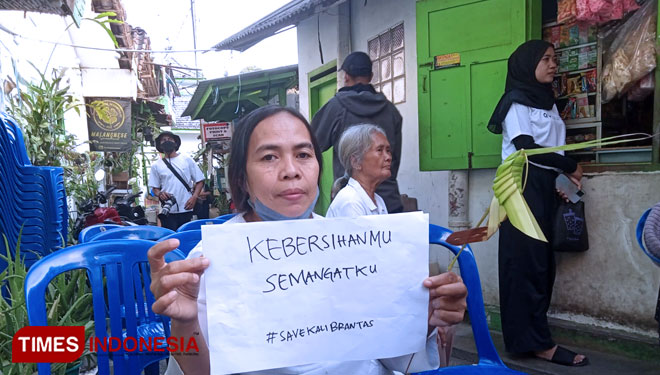 MALANGNESE
KEBERSIHANMU
SEMANGATKU
#SAVEKALIBRANTAS
TIMES INDONESIA